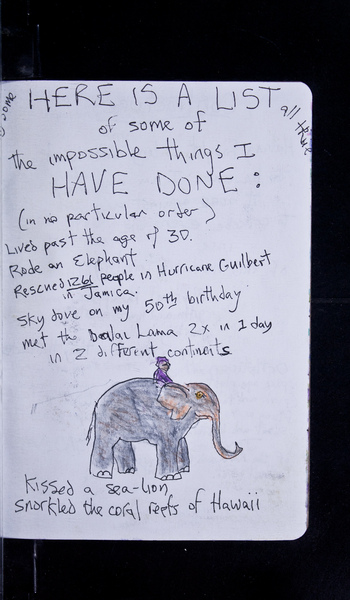 some
HERE IS A LIST
all true
of some of
the impossible things I
HAVE DONE:
(in no particular order)
Lived past the age of 30.
Rode an Elephant
Rescued 1261 people in Hurricane Guilbert
in Jamica.
Sky dove on my 50th birthday
met the Dalai Lama 2x in 1 day
in 2 different continents
Kissed a sea-lion
snorkled the coral reefs of Hawaii